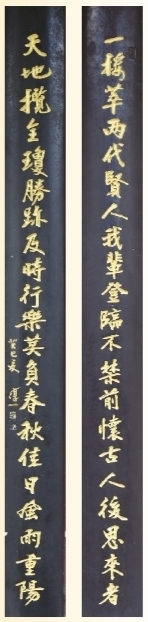 一楼萃两代賢人我輩登臨不禁前懷古人後思來者
天地攬全瓊勝跡及時行樂莫負春秋佳日風雨重陽
癸巳冬